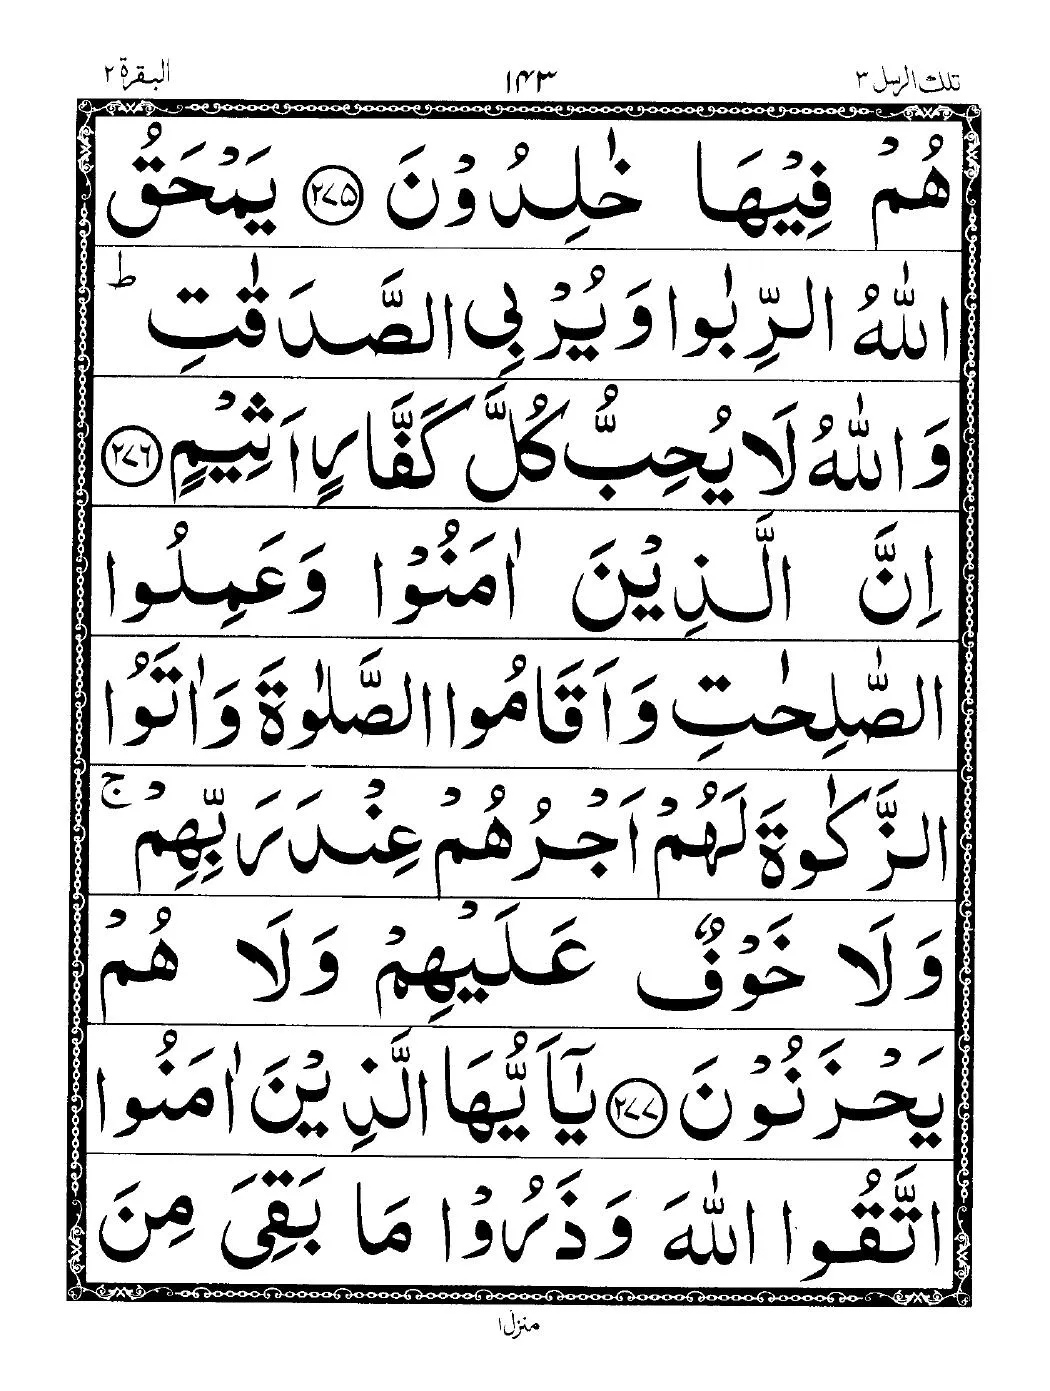 تلك الرسل ٣
١۴٣
البقرة ٢
هُمْ فِيْهَا خٰلِدُوْنَ ۲۷۵ يَمْحَقُ
اللّٰهُ الرِّبٰوا وَيُرْبِى الصَّدَقٰتِ ؕ
وَاللّٰهُ لَا يُحِبُّ كُلَّ كَفَّارٍ اَثِيْمٍ ۲۷۶
اِنَّ الَّذِيْنَ اٰمَنُوْا وَعَمِلُوا
الصّٰلِحٰتِ وَاَقَامُوا الصَّلٰوةَ وَاٰتَوُا
الزَّكٰوةَ لَهُمْ اَجْرُهُمْ عِنْدَ رَبِّهِمْ ۚ
وَلَا خَوْفٌ عَلَيْهِمْ وَلَا هُمْ
يَحْزَنُوْنَ ۲۷۷ يٰۤاَيُّهَا الَّذِيْنَ اٰمَنُوا
اتَّقُوا اللّٰهَ وَذَرُوْا مَا بَقِىَ مِنَ
منزل ١